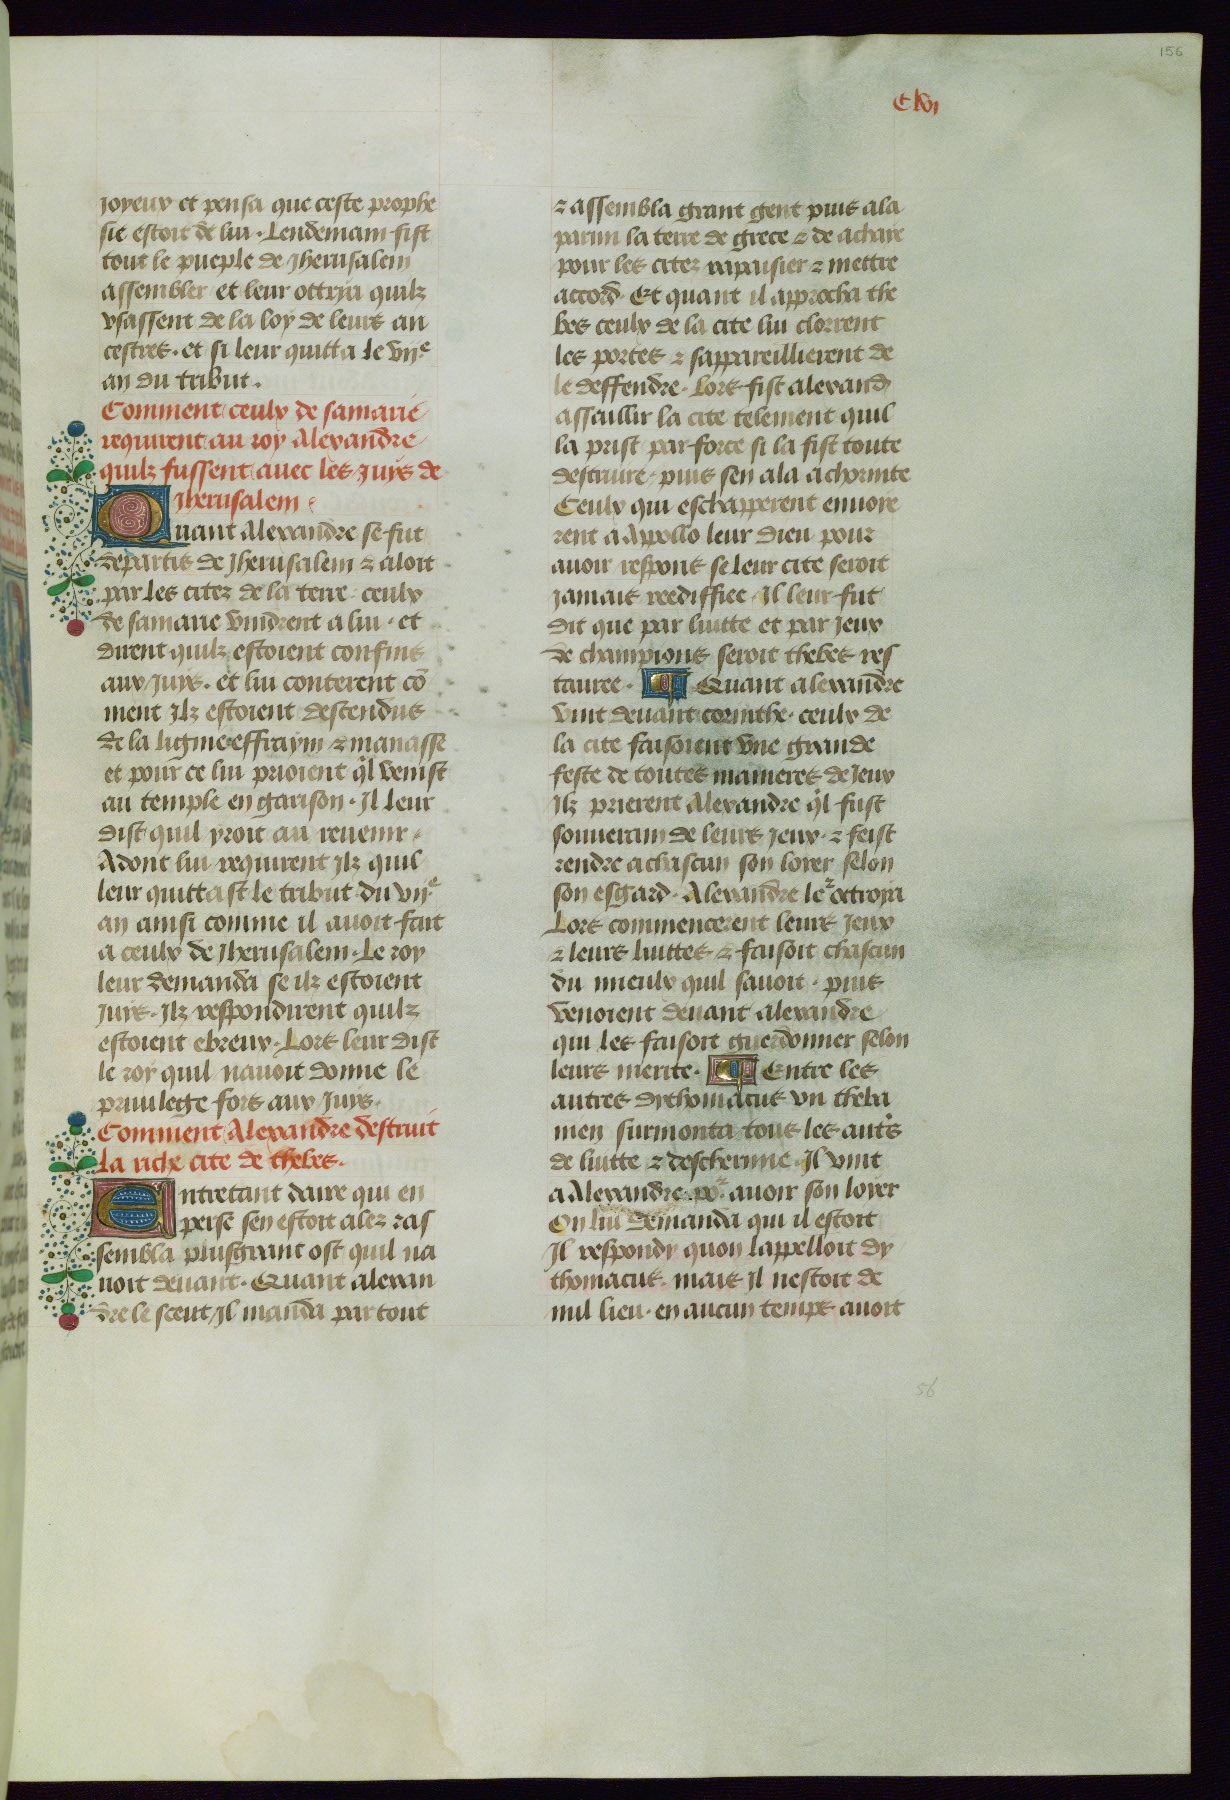 156
Clvi
joyeux et pensa que ceste prophe
sie estoit de lui . Lendemain fist
tout le pueple de Jherusalem
assembler et leur ottrya quilz
vsassent de la loy de leurs an
cestres . et si leur quitta le vije
an du tribut .
Comment ceulx de samarie
requirent au roy Alexandre
quilz fussent auec les Juys de
Jherusalem
Quant Alexandre se fut
departis de Jherusalem ⁊ aloit
par les citez de la terre . ceulx
de samarie vindrent a lui . et
dirent quilz estoient confins
aux Juys . et lui conterent cō
ment Jlz estoient descendus
de la lignie effraym ⁊ manasse
et pour ce lui prioient q̓l venist
au temple en garison . Jl leur
dist quil yroit au reuenir .
Adont lui requirent Jlz quil
leur quittast le tribut du vije
an ainsi comme il auoit fait
a ceulx de Jherusalem . Le roy
leur demanda se ilz estoient
Juys . Jlz respondirent quilz
estoient ebreux . Lors leur dist
le roy quil nauoit donne le
priuilege fors aux Juys .
Comment Alexandre destruit
la riche cite de thebes .
Entretant daire qui en
perse sen estoit alez ras
sembla plusgrant ost quil na
uoit deuant . Quant alexan
dre le sceut Jl manda partout
⁊ assembla grant gent puis ala
parmi la terre de grece ⁊ de achaie
pour les citez rapaisier ⁊ mettre
accord . Et quant il approcha the
bes ceulx de la cite lui clorrent
les portes ⁊ sappareillierent de
le deffendre . Lors fist alexand̄
assaillir la cite telement quil
la prist par force si la fist toute
destruire . puis sen ala a chorinte
Ceulx qui eschapperent enuoie
rent a Appollo leur dieu pour
auoir respons se leur cite seroit
jamais reediffiee . Il leur fut
dit que par luitte et par Jeux
de champions seroit thebes res
tauree . Quant alexandre
vint deuant corinthe . ceulx de
la cite faisoient vne grande
feste de toutes manieres de Jeux
Jlz prierent Alexandre q̓l fust
souuerain de leurs Jeux . ⁊ feist
rendre a chascun son loyer selon
son esgard . Alexandre ler octroya
Lors commencerent leurs Jeux
⁊ leurs luittes ⁊ faisoit chascun
du mieulx quil sauoit . puis
venoient deuant alexandre
qui les faisoit guerdonner selon
leurs merite . Entre les
autres dythomacus vn theba
nien surmonta tous les aut̓s
de luitte ⁊ descherme . Jl vint
a Alexandre por auoir son loyer
On lui demanda qui il estoit
Jl respondy quon lappelloit dy
thomacus . mais Jl nestoit de
nul lieu . en aucun temps auoit
56